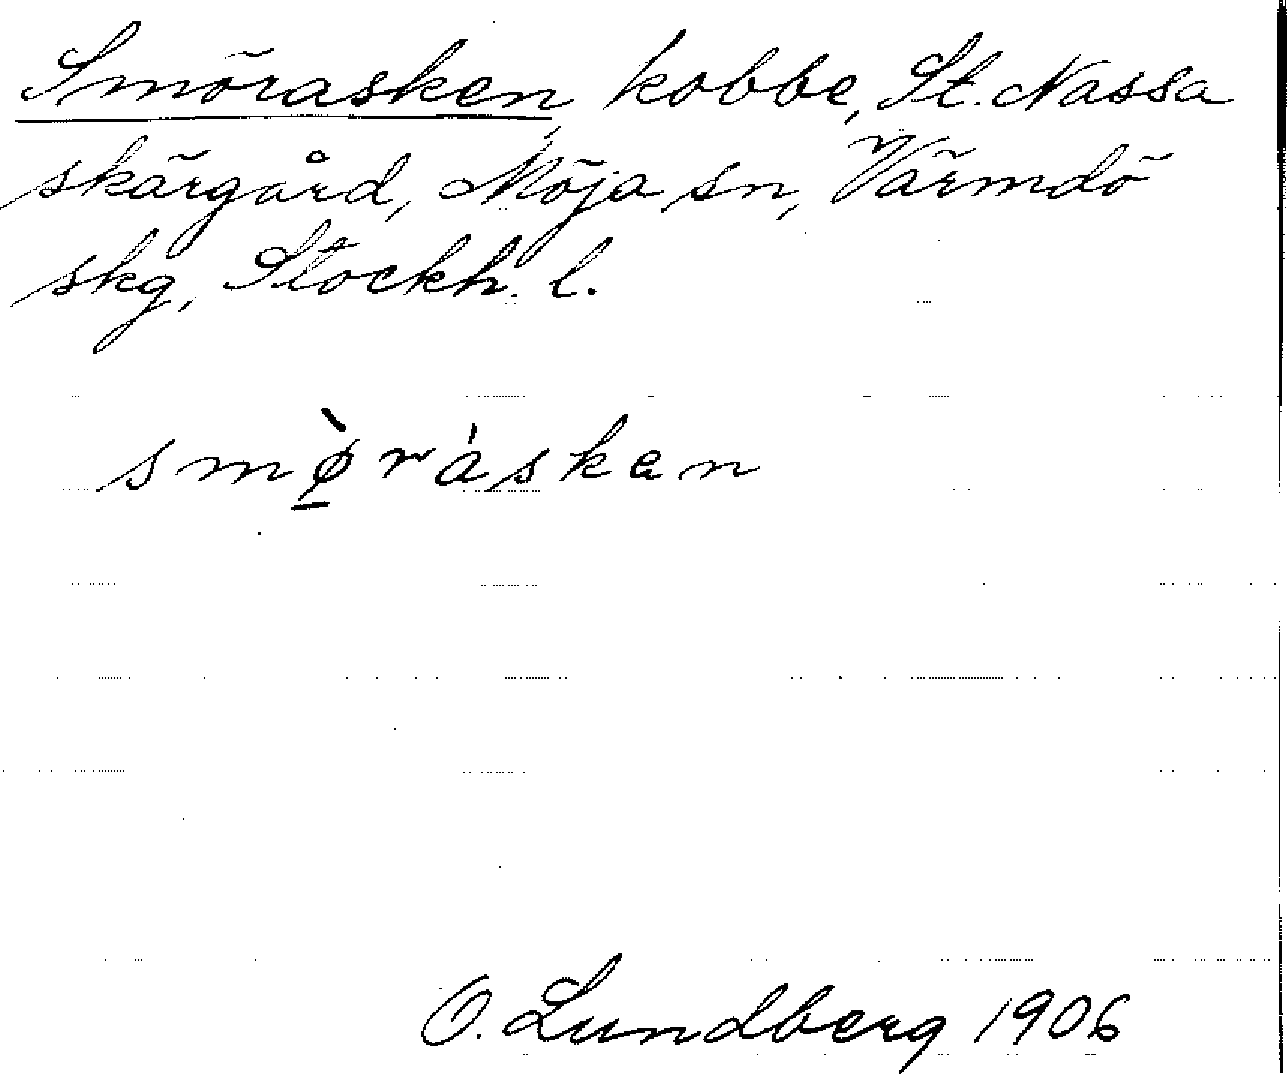 Smörasken, kobbe, St. Nassa
skärgård, Möja sn, Värmdö
skg, Stockh. l.
smø̱̀ráskan
O. Lundberg 1906